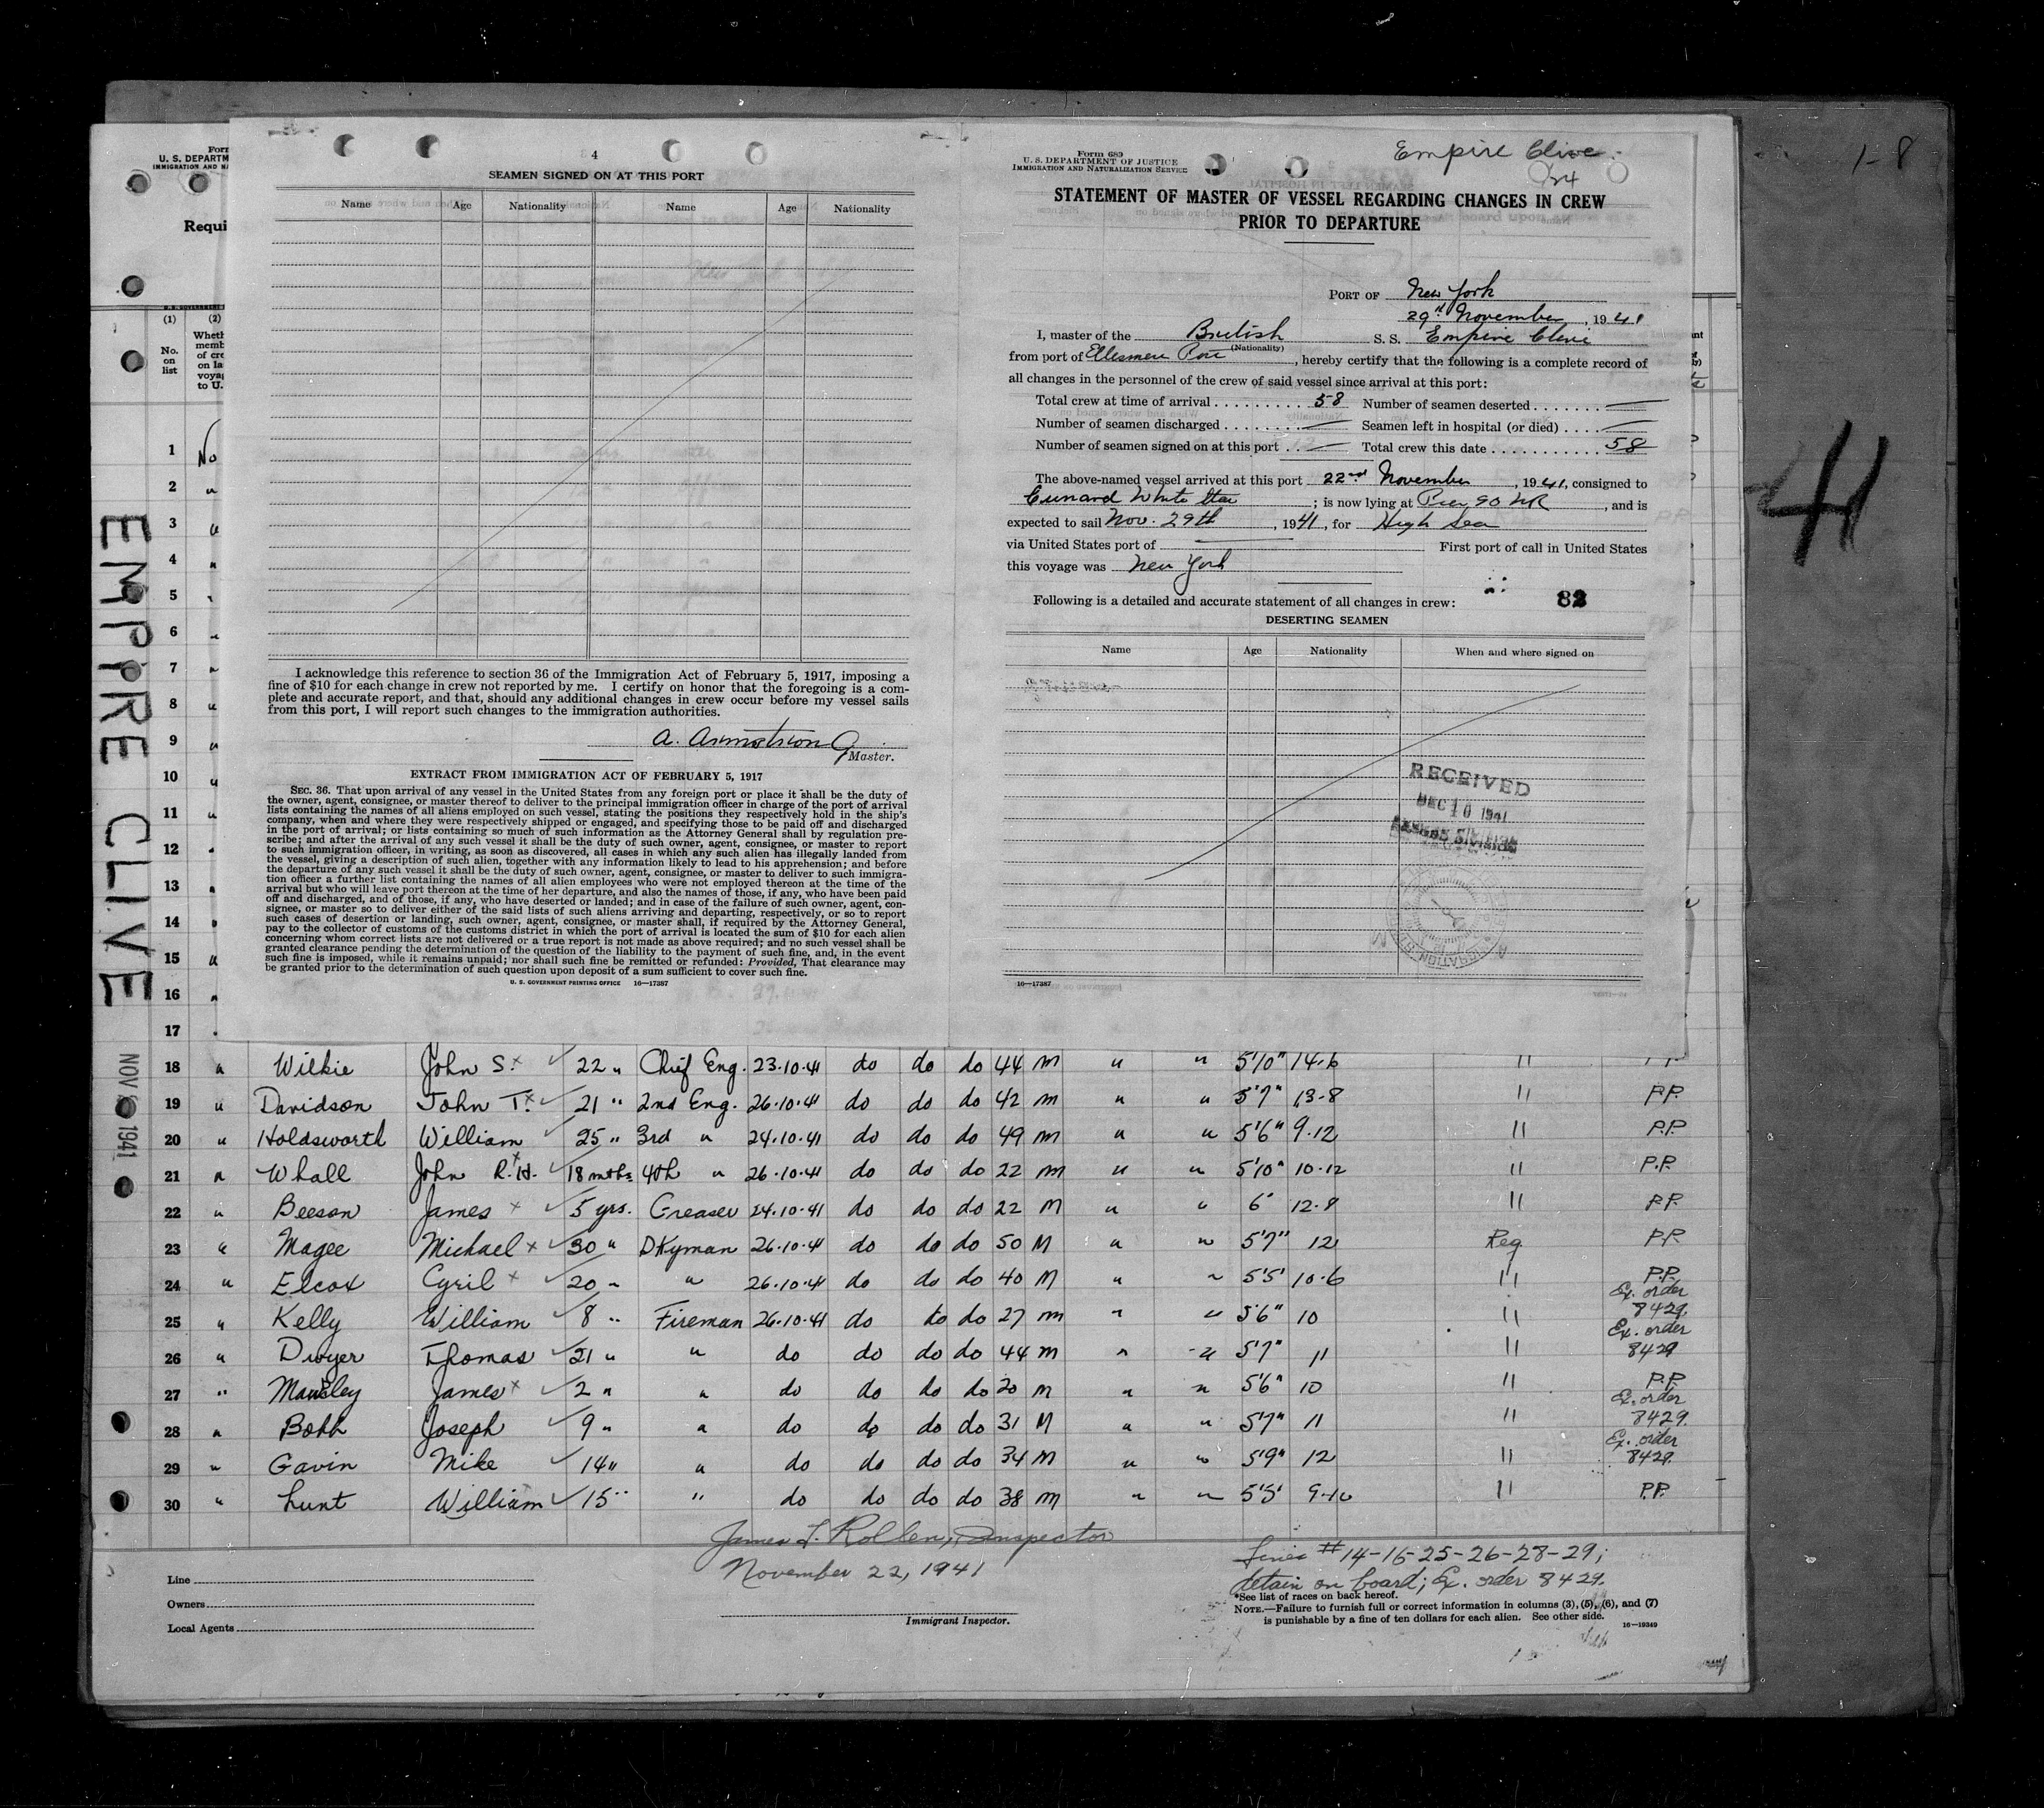 1-8
4
SEAMEN SIGNED ON AT THIS PORT
Name Age Nationality Name Age Nationality
I acknowledge this reference to section 36 of the Immigration Act of February 5, 1917, imposing a
fine of $10 for each change in crew not reported by me. I certify on honor that the foregoing is a com-
plete and accurate report, and that, should any additional changes in crew occur before my vessel sails
from this port, I will report such changes to the immigration authorities.
A. Armstrong
Master.
EXTRACT FROM IMMIGRATION ACT OF FEBRUARY 5, 1917
SEC. 36. That upon arrival of any vessel in the United States from any foreign port or place it shall be the duty of
the owner, agent, consignee, or master thereof to deliver to the principal immigration officer in charge of the port of arrival
lists containing the names of all aliens employed on such vessel, stating the positions they respectively hold in the ship's
company, when and where they were respectively shipped or engaged, and specifying those to be paid off and discharged
in the port of arrival; or lists containing so much of such information as the Attorney General shall by regulation pre-
scribe; and after the arrival of any such vessel it shall be the duty of such owner, agent, consignee, or master to report
to such immigration officer, in writing, as soon as discovered, all cases in which any such alien has illegally landed from
the vessel, giving a description of such alien, together with any information likely to lead to his apprehension; and before
the departure of any such vessel it shall be the duty of such owner, agent, consignee, or master to deliver to such immigra-
tion officer a further list containing the names of all alien employees who were not employed thereon at the time of the
arrival but who will leave port thereon at the time of her departure, and also the names of those, if any, who have been paid
off and discharged, and of those, if any, who have deserted or landed; and in case of the failure of such owner, agent, con-
signee, or master so to deliver either of the said lists of such aliens arriving and departing, respectively, or so to report
such cases of desertion or landing, such owner, agent, consignee, or master shall, if required by the Attorney General,
pay to the collector of customs of the customs district in which the port of arrival is located the sum of $10 for each alien
concerning whom correct lists are not delivered or a true report is not made as above required; and no such vessel shall be
granted clearance pending the determination of the question of the liability to the payment of such fine, and, in the event
such fine is imposed, while it remains unpaid; nor shall such fine be remitted or refunded: Provided, That clearance may
be granted prior to the determination of such question upon deposit of a sum sufficient to cover such fine.
U. S. GOVERNMENT PRINTING OFFICE 16—17387
Form 689
U. S. DEPARTMENT OF JUSTICE
IMMIGRATION AND NATURALIZATION SERVICE
Empire Clive
STATEMENT OF MASTER OF VESSEL REGARDING CHANGES IN CREW
PRIOR TO DEPARTURE
PORT OF New York
29th November, 1941
I, master of the British S. S. Empire Clive
(Nationality)
from port of Ellesmere Port, hereby certify that the following is a complete record of
all changes in the personnel of the crew of said vessel since arrival at this port:
Total crew at time of arrival 58 Number of seamen deserted —
Number of seamen discharged — Seamen left in hospital (or died) —
Number of seamen signed on at this port — Total crew this date 58
The above-named vessel arrived at this port 22nd November, 1941, consigned to
Cunard White Star; is now lying at Pier 90 NR, and is
expected to sail Nov. 29th, 1941, for High Sea
via United States port of — First port of call in United States
this voyage was New York
Following is a detailed and accurate statement of all changes in crew:
DESERTING SEAMEN
Name Age Nationality When and where signed on
RECEIVED
DEC 10 1941
16—17387
H
Form
U. S. DEPARTM
IMMIGRATION AND NA
Requi
(1) (2)
No. on list
Wheth
memb
of cre
on la
voyag
to U.
EMPIRE CLIVE
NOV 1941
1 No
2 "
3 "
4 "
5 "
6 "
7 "
8 "
9 "
10 "
11 "
12 "
13 "
14 "
15 "
16 "
17 "
18 " Wilkie John S. 22 " Chief Eng. 23.10.41 do do do 44 M " " 5'10" 14.6 "
19 " Davidson John T. 21 " 2nd Eng. 26.10.41 do do do 42 M " " 5'7" 13-8 " P.P.
20 " Holdsworth William 25 " 3rd " 24.10.41 do do do 49 M " " 5'6" 9.12 " P.P.
21 " Whall John R.H. 18 mths 4th " 26.10.41 do do do 22 M " " 5'10" 10.12 " P.P.
22 " Beeson James 5 yrs. Greaser 24.10.41 do do do 22 M " " 6' 12.8 " P.P.
23 " Magee Michael 30 " DKyman 26.10.41 do do do 50 M " " 5'7" 12 Reg P.P.
24 " Elcox Cyril 20 " " 26.10.41 do do do 40 M " " 5'5" 10.6 " P.P.
25 " Kelly William 8 " Fireman 26.10.41 do do do 27 M " " 5'6" 10 " Ex. order 8429.
26 " Dwyer Thomas 21 " " do do do do 44 M " " 5'7" 11 " Ex. order 8429
27 " James 2 " " do do do do 20 M " " 5'6" 10 " P.P.
28 " Joseph 9 " " do do do do 31 M " " 5'7" 11 " Ex. order 8429.
29 " Gavin Mike 14 " " do do do do 34 M " " 5'9" 12 " Ex. order 8429.
30 " Lunt William 15 " " do do do do 38 M " " 5'5" 9-10 " P.P.
James T. Rollen, Inspector
November 22, 1941
Immigrant Inspector.
Line
Owners
Local Agents
Lines #14-16-25-26-28-29;
detain on board; Ex. order 8429.
*See list of races on back hereof.
NOTE.—Failure to furnish full or correct information in columns (3), (5), (6), and (7)
is punishable by a fine of ten dollars for each alien. See other side.
16—19349